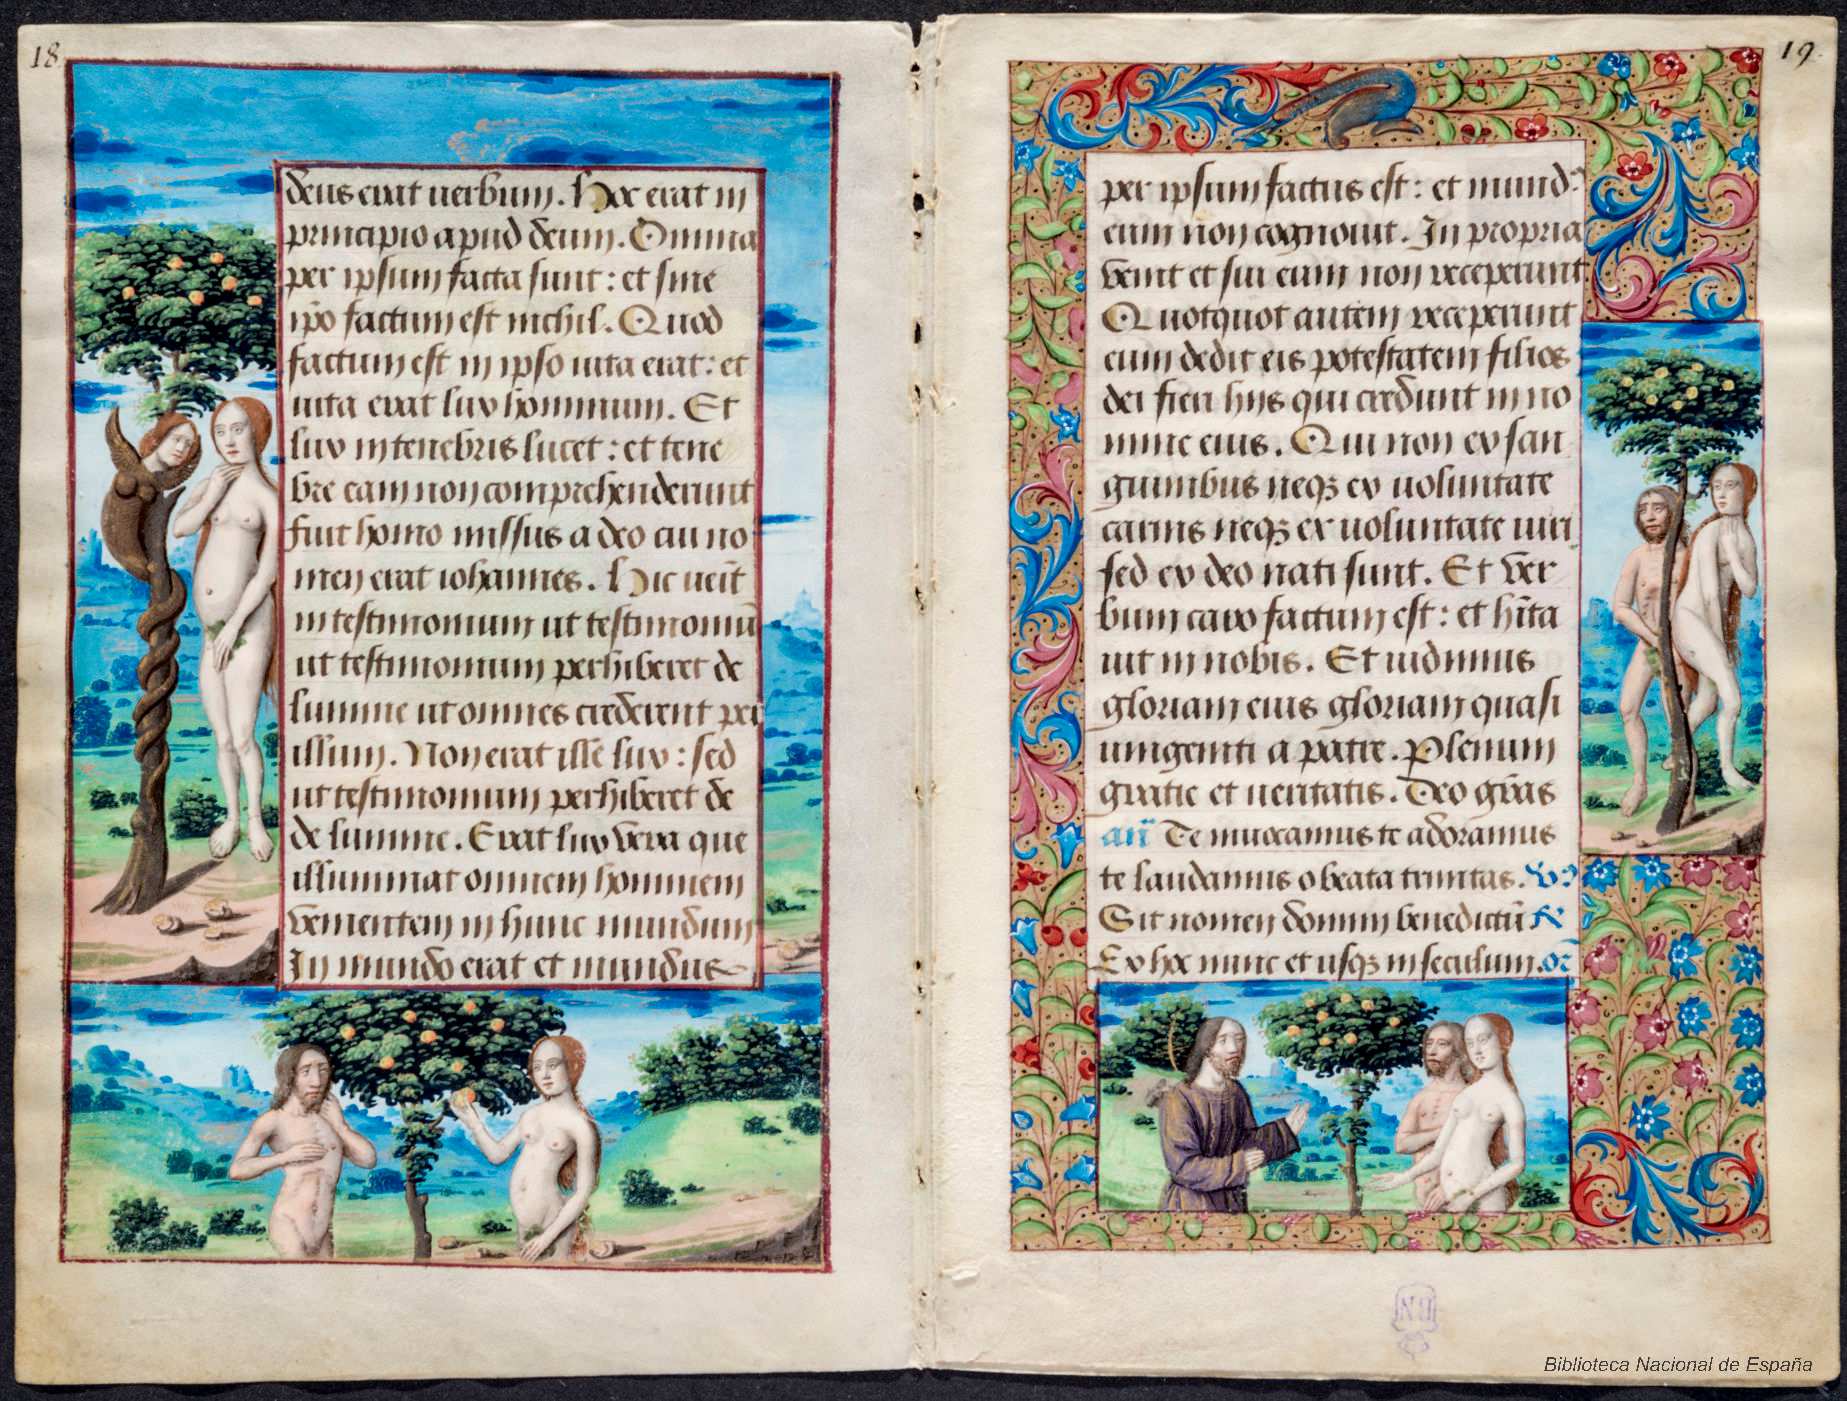 18
deus erat uerbum. Hoc erat in
principio apud deum. Omnia
per ipsum facta sunt: et sine
ip̅o factum est nichil. Quod
factum est in ipso uita erat: et
uita erat lux hominum. Et
lux in tenebris lucet: et tene
bre eam non comprehenderunt
fuit homo missus a deo cui no
men erat iohannes. Hic uen̅it
in testimonium ut testimoniu̅
ut testimonium perhiberet de
lumine ut omnes crederent per
illum. Non erat ille lux: sed
ut testimonium perhiberet de
de lumine. Erat lux vera que
illuminat omnem hominem
venientem in hunc mundum
In mundo erat et mundus
19
per ipsum factus est: et mund9
eum non cognouit. In propria
venit et sui eum non receperunt
Quotquot autem receperunt
eum dedit eis potestatem filios
dei fieri hijs qui credunt in no
mine eius. Qui non ex san
guinibus neqꝫ ex uoluntate
carnis neqꝫ ex uoluntate uiri
sed ex deo nati sunt. Et ver
bum caro factum est: et h̅ita
uit in nobis. Et uidimus
gloriam eius gloriam quasi
unigeniti a patre. Plenum
gratie et ueritatis. Deo gr̅as
an̅ Te inuocamus te adoramus
te laudamus o beata trinitas. V̅
Sit nomen domini benedictu̅ R̅
Ex hoc nunc et usqꝫ in seculum. or̅
BN
Biblioteca Nacional de España